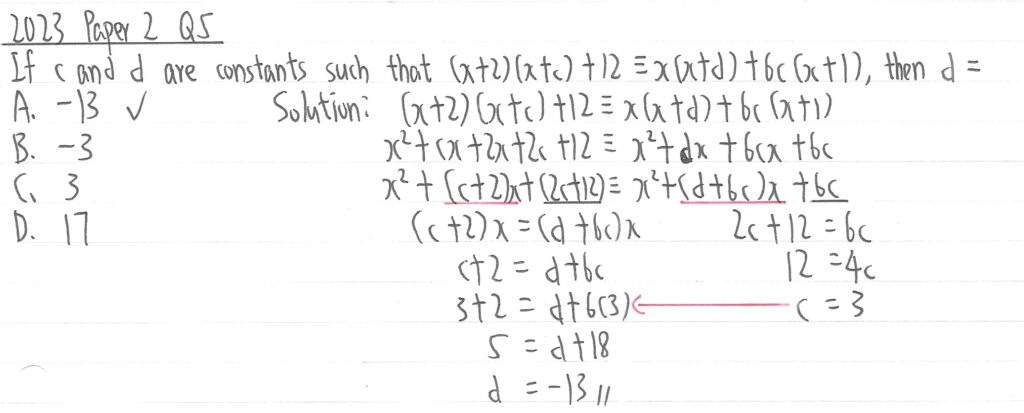 2023 Paper 2 Q5
If c and d are constants such that (x+2)(x+c)+12 ≡ x(x+d)+6c(x+1), then d =
A. -13 ✓ Solution: (x+2)(x+c)+12 ≡ x(x+d)+6c(x+1)
B. -3 x²+cx+2x+2c+12 ≡ x²+dx+6cx+6c
C. 3 x²+(c+2)x+(2c+12) ≡ x²+(d+6c)x+6c
D. 17 (c+2)x=(d+6c)x 2c+12=6c
c+2 = d+6c 12=4c
3+2 = d+6(3) ← c=3
5 = d+18
d = -13 //